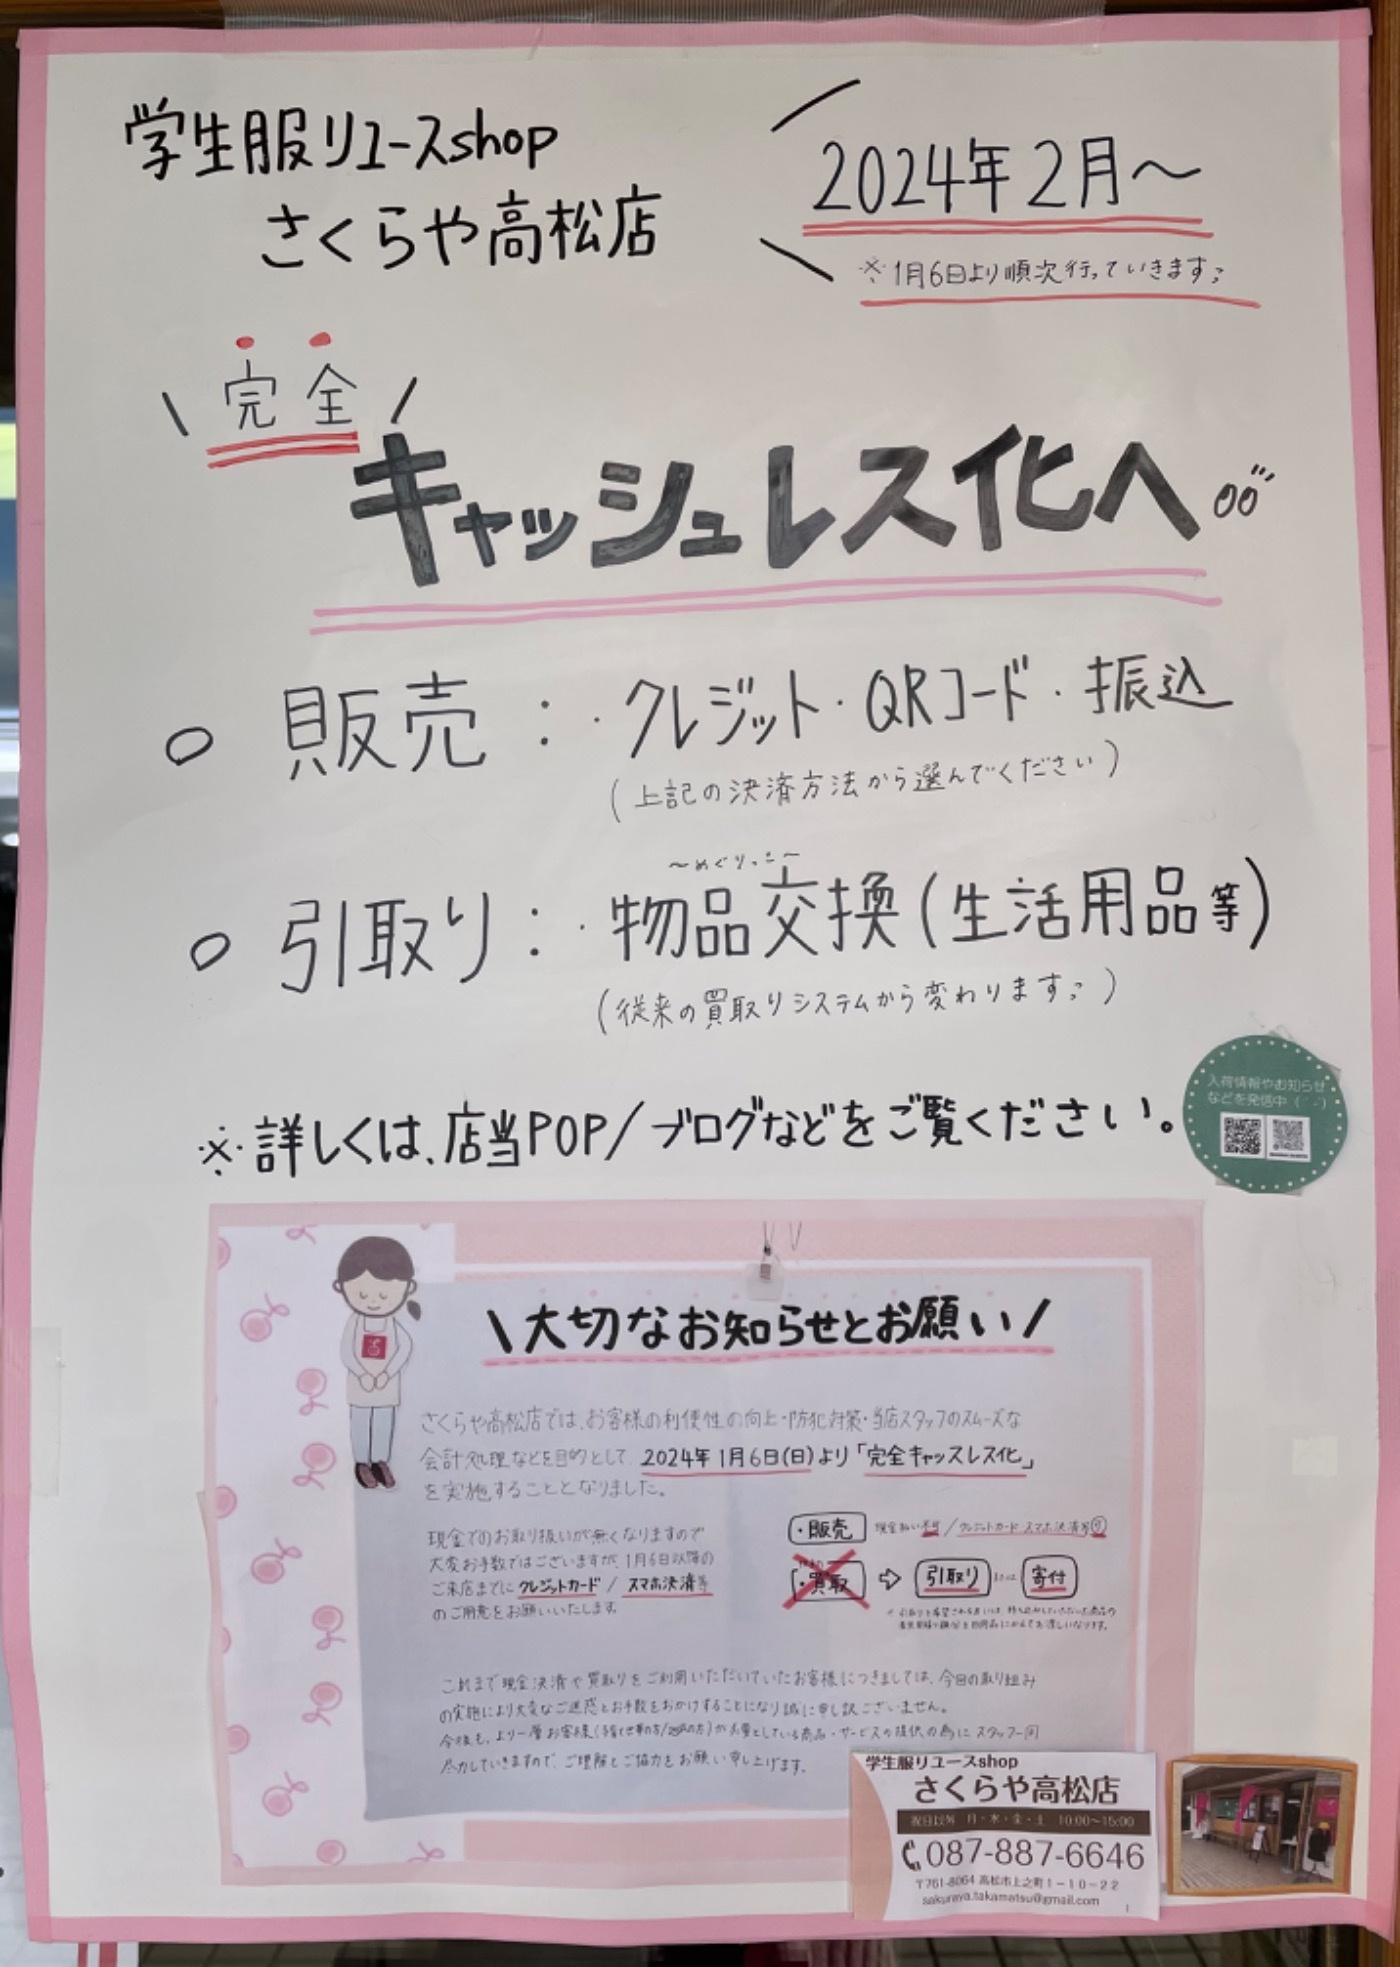 学生服リユースshop
さくらや高松店
2024年2月～
※1月6日より順次行っていきます。
完全
キャッシュレス化へ
○ 販売：・クレジット・QRコード・振込
(上記の決済方法から選んでください)
～めぐりっこ～
○ 引取り：・物品交換(生活用品等)
(従来の買取りシステムから変わります。)
※詳しくは、店当POP/ブログなどをご覧ください。
入荷情報やお知らせ
などを発信中
\大切なお知らせとお願い/
さくらや高松店では、お客様の利便性の向上・防犯対策・当店スタッフのスムーズな
会計処理などを目的として 2024年1月6日(日)より「完全キャッスレス化」
を実施することとなりました。
現金でのお取り扱いが無くなりますので
大変お手数ではございますが、1月6日以降の
ご来店までに クレジットカード / スマホ決済等
のご用意をお願いいたします。
・販売 現金払い不可 / クレジットカード スマホ決済等可
・買取 ⇨ 引取り または 寄付
これまで現金決済や買取りをご利用いただいていたお客様につきましては、今回の取り組み
の実施により大変なご迷惑とお手数をおかけすることになり誠に申し訳ございません。
今後も、より一層お客様(子育て世帯の方/地域の方)が必要としている商品・サービスの提供の為に スタッフ一同
尽力していきますので、ご理解とご協力をお願い申し上げます。
学生服リユースshop
さくらや高松店
祝日以外 月・水・金・土 10:00～15:00
087-887-6646
〒761-8064 高松市上之町1－10－22
sakuraya.takamatsu@gmail.com